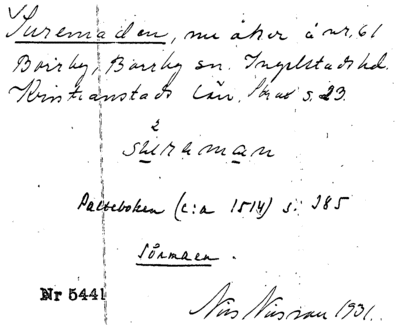 Suremaden, nu åker å nr. 61
Borrby, Borrby sn. Ingelstads hd.
Kristianstads län. s. 23.
Palteboken (c:a 1514) s. 385
Sörmaen.
Nr 5441
Nils Nilsson 1931.